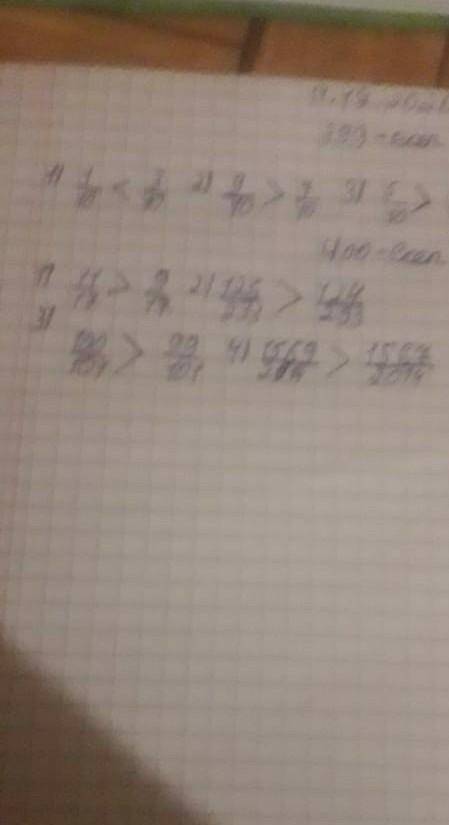 399-есеп
1) 1/10 < 3/10 2) 9/10 > 7/10 3) 5/10 >
400-есеп
1) 11/14 > 9/14 2) 125/293 > 124/293
3)
100/101 > 99/101 4) 1569/2014 > 1567/2014